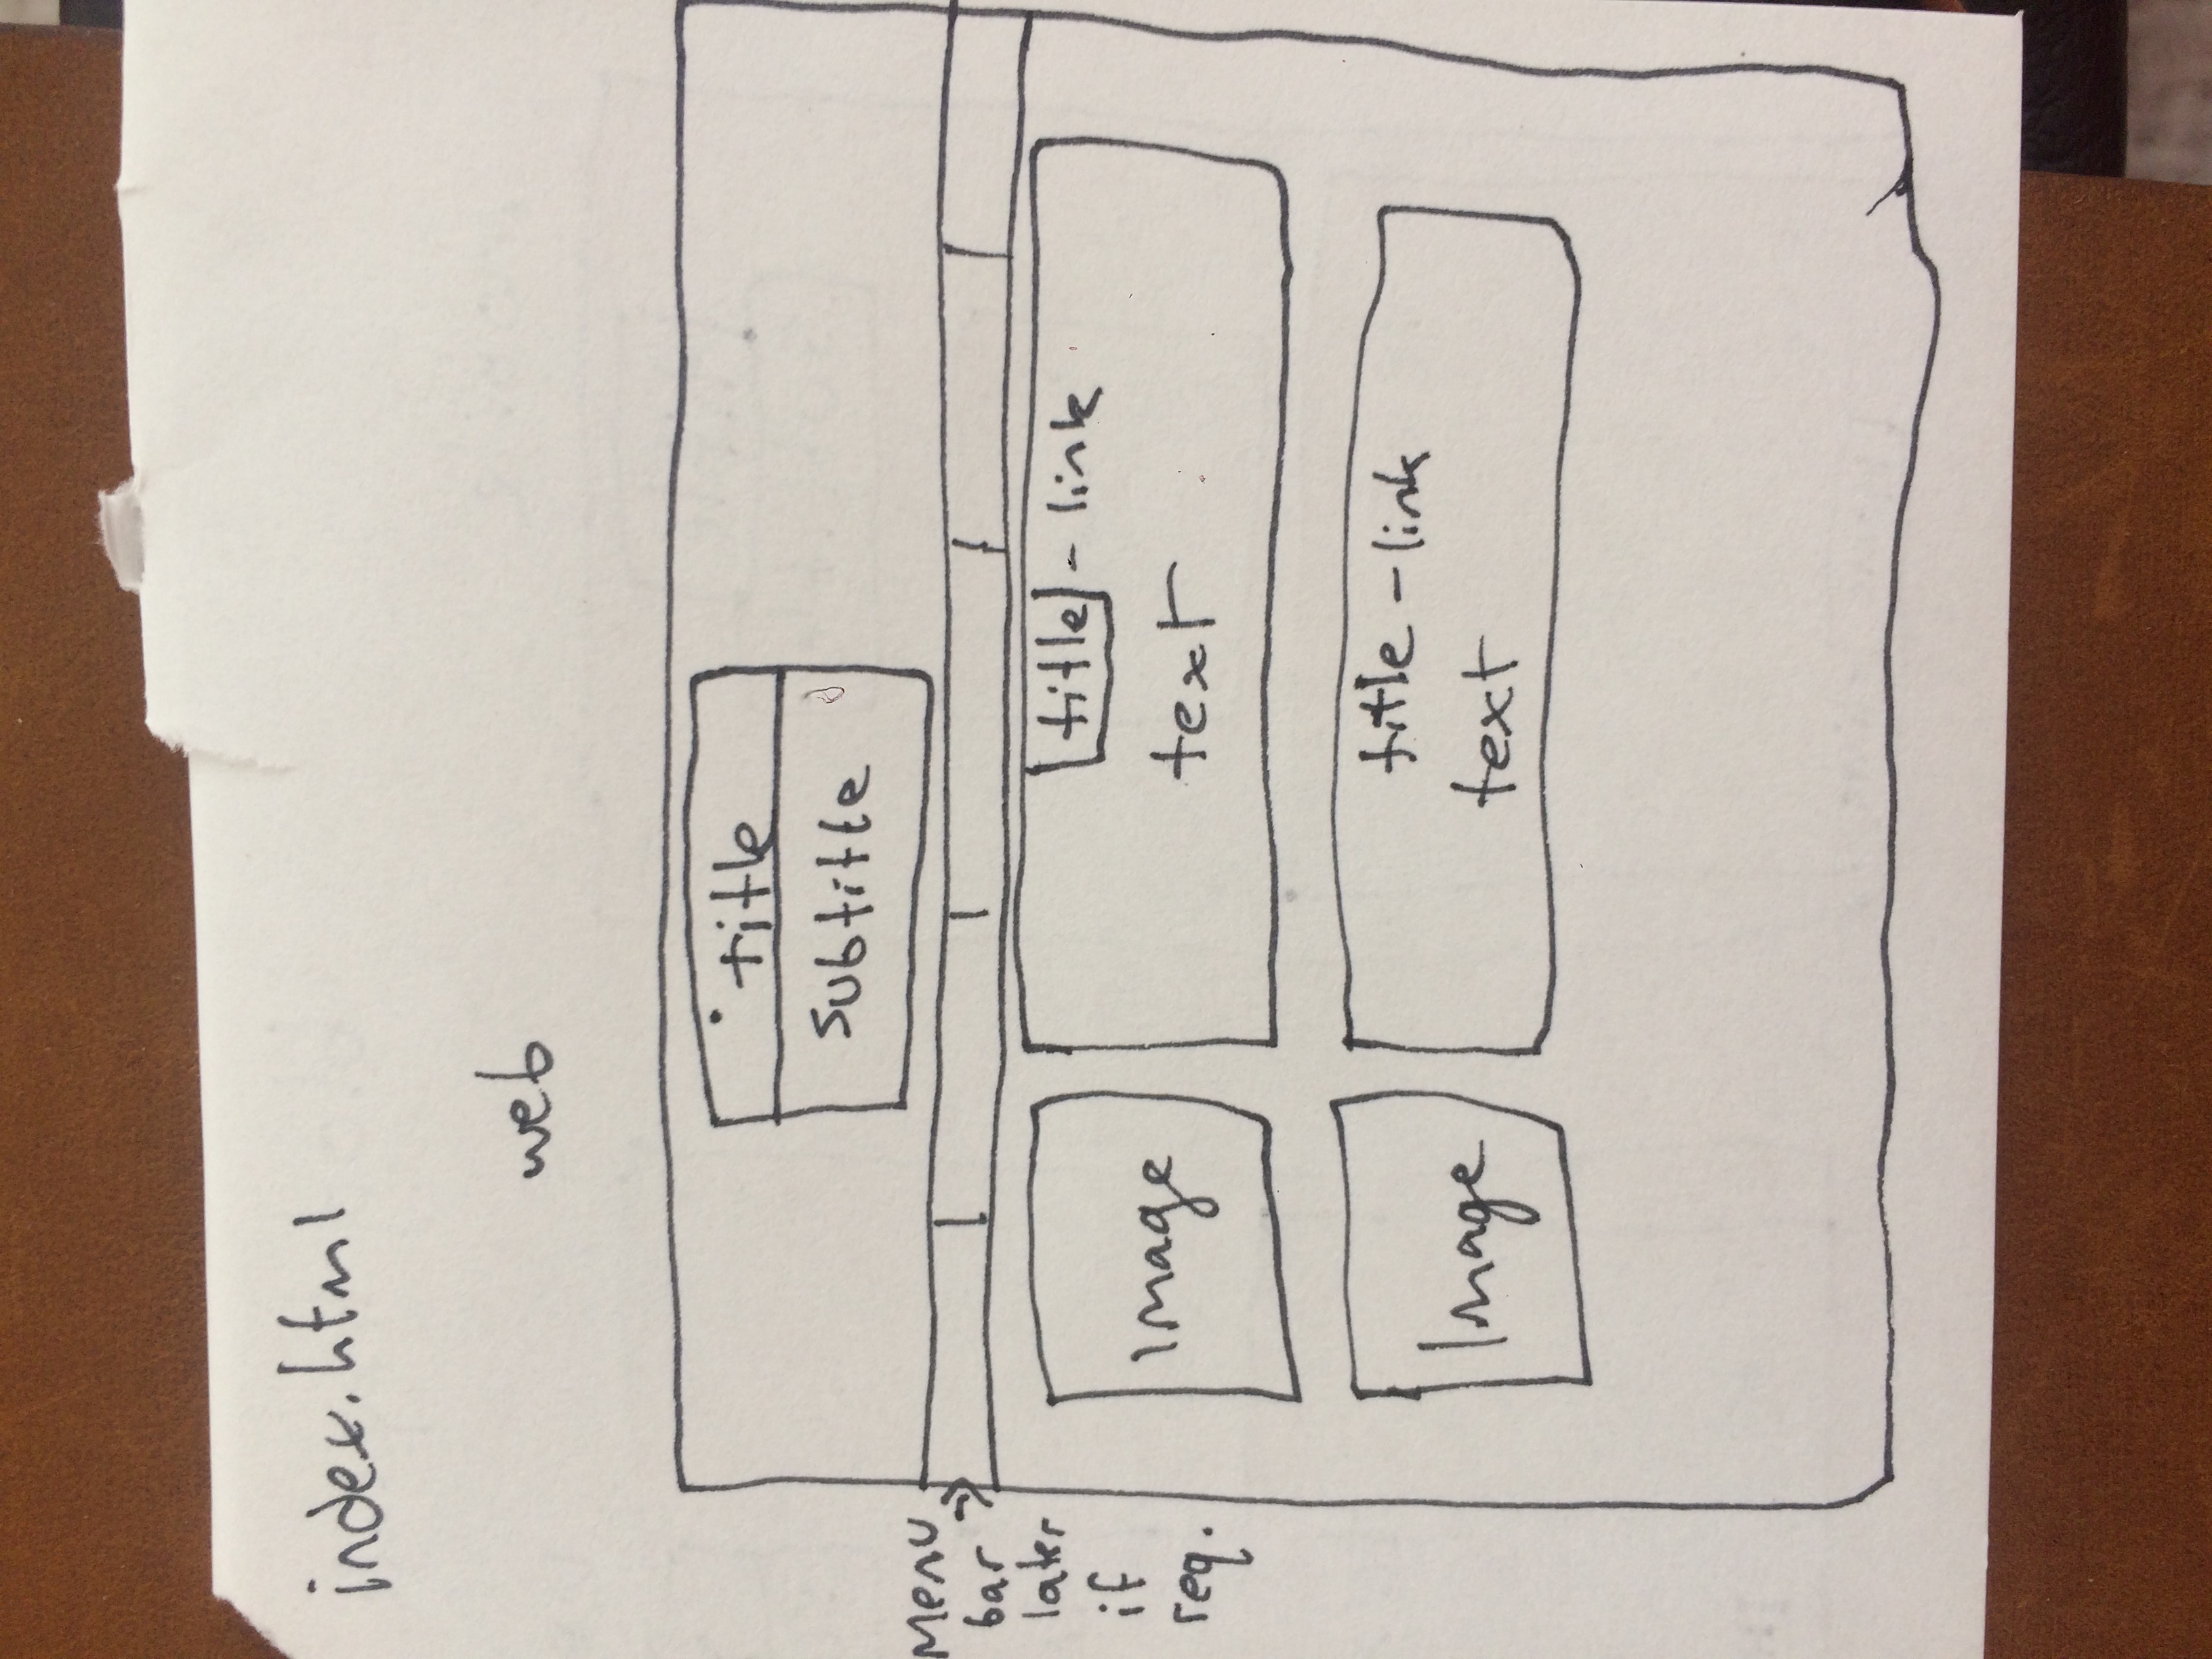 index.html
web
title
subtitle
Menu
bar
later
if
req.
Image
title - link
text
Image
title - link
text